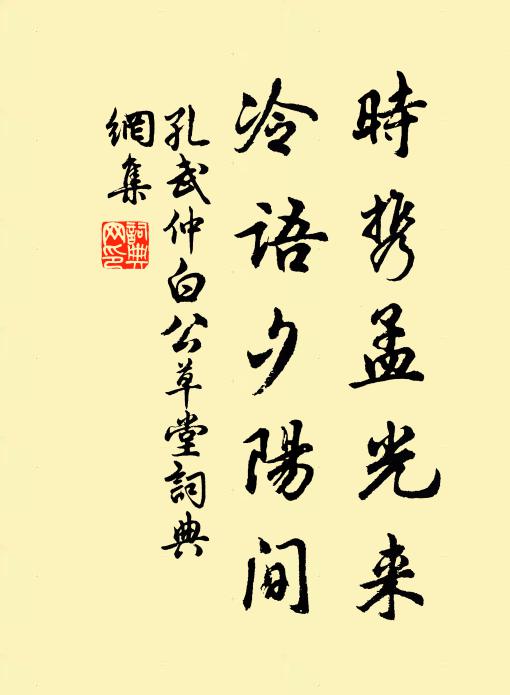 時携孟光来
冷語夕陽間
孔武仲白公草堂詞典
網集
詞典
网印